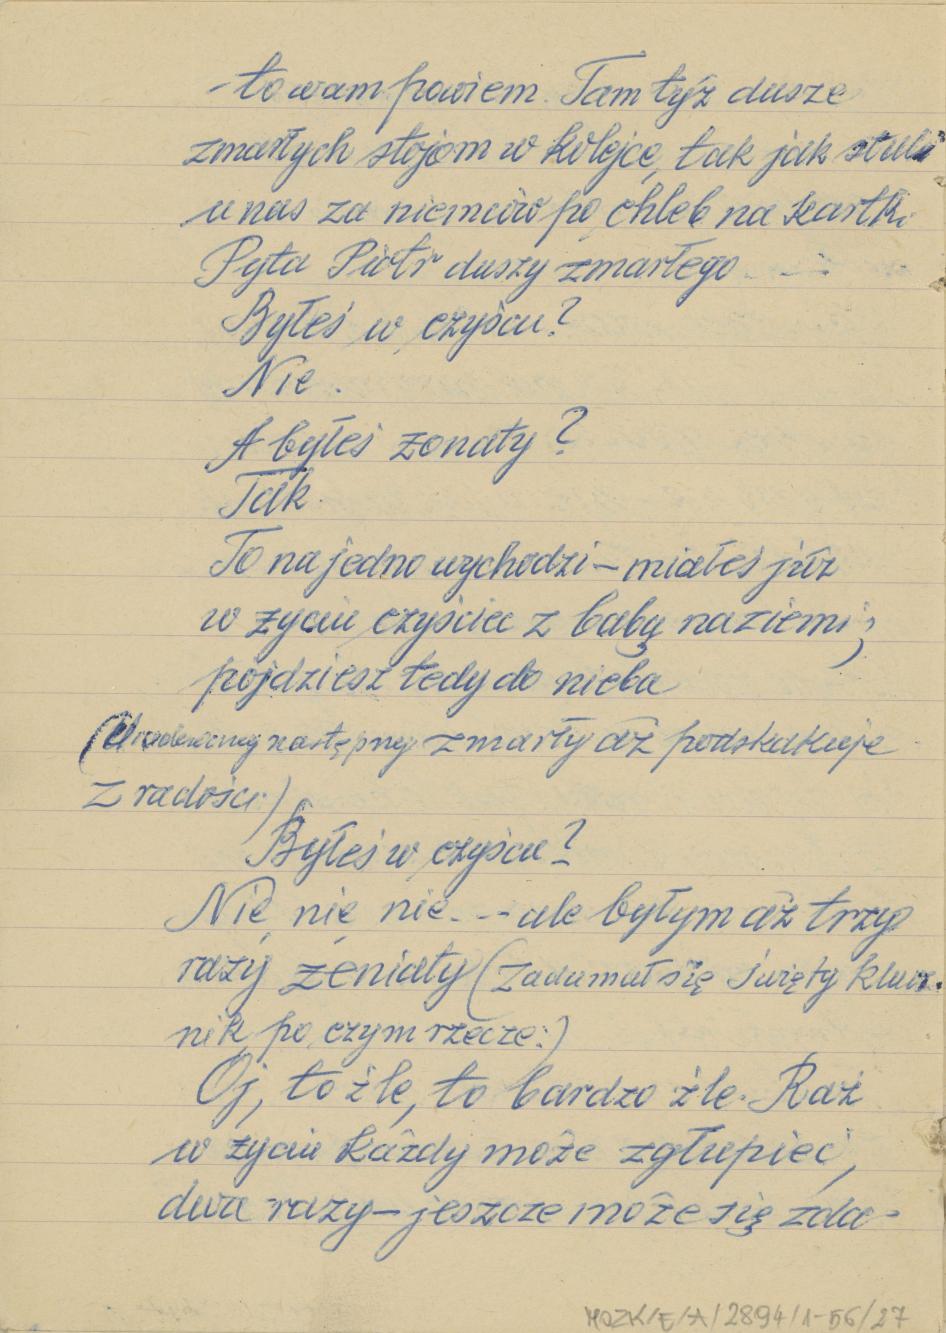 - to wam powiem. Tam tyż dusze
zmarłych stojom w kolejce, tak jak stuli
u nas za niemców po chleb na kartki
Pyta Piotr duszy zmarłego
Byłeś w czyścu?
Nie.
A byłeś żonaty?
Tak
To na jedno wychodzi – miałeś już
w życiu czyściec z babą na ziemi;
pójdziesz tedy do nieba
(Uradowany następnej zmarły aż podskakuje
z radości)
Byłeś w czyścu?
Nie, nie, nie... - ale byłym aż trzy
razy żeniaty (zadumał się święty klucz-
nik, po czym rzecze:)
Oj, to źle, to bardzo źle. Raz
w życiu każdy może zgłupieć,
dwa razy – jeszcze może się zda-
MOZK/E/A/2894/1-56/27